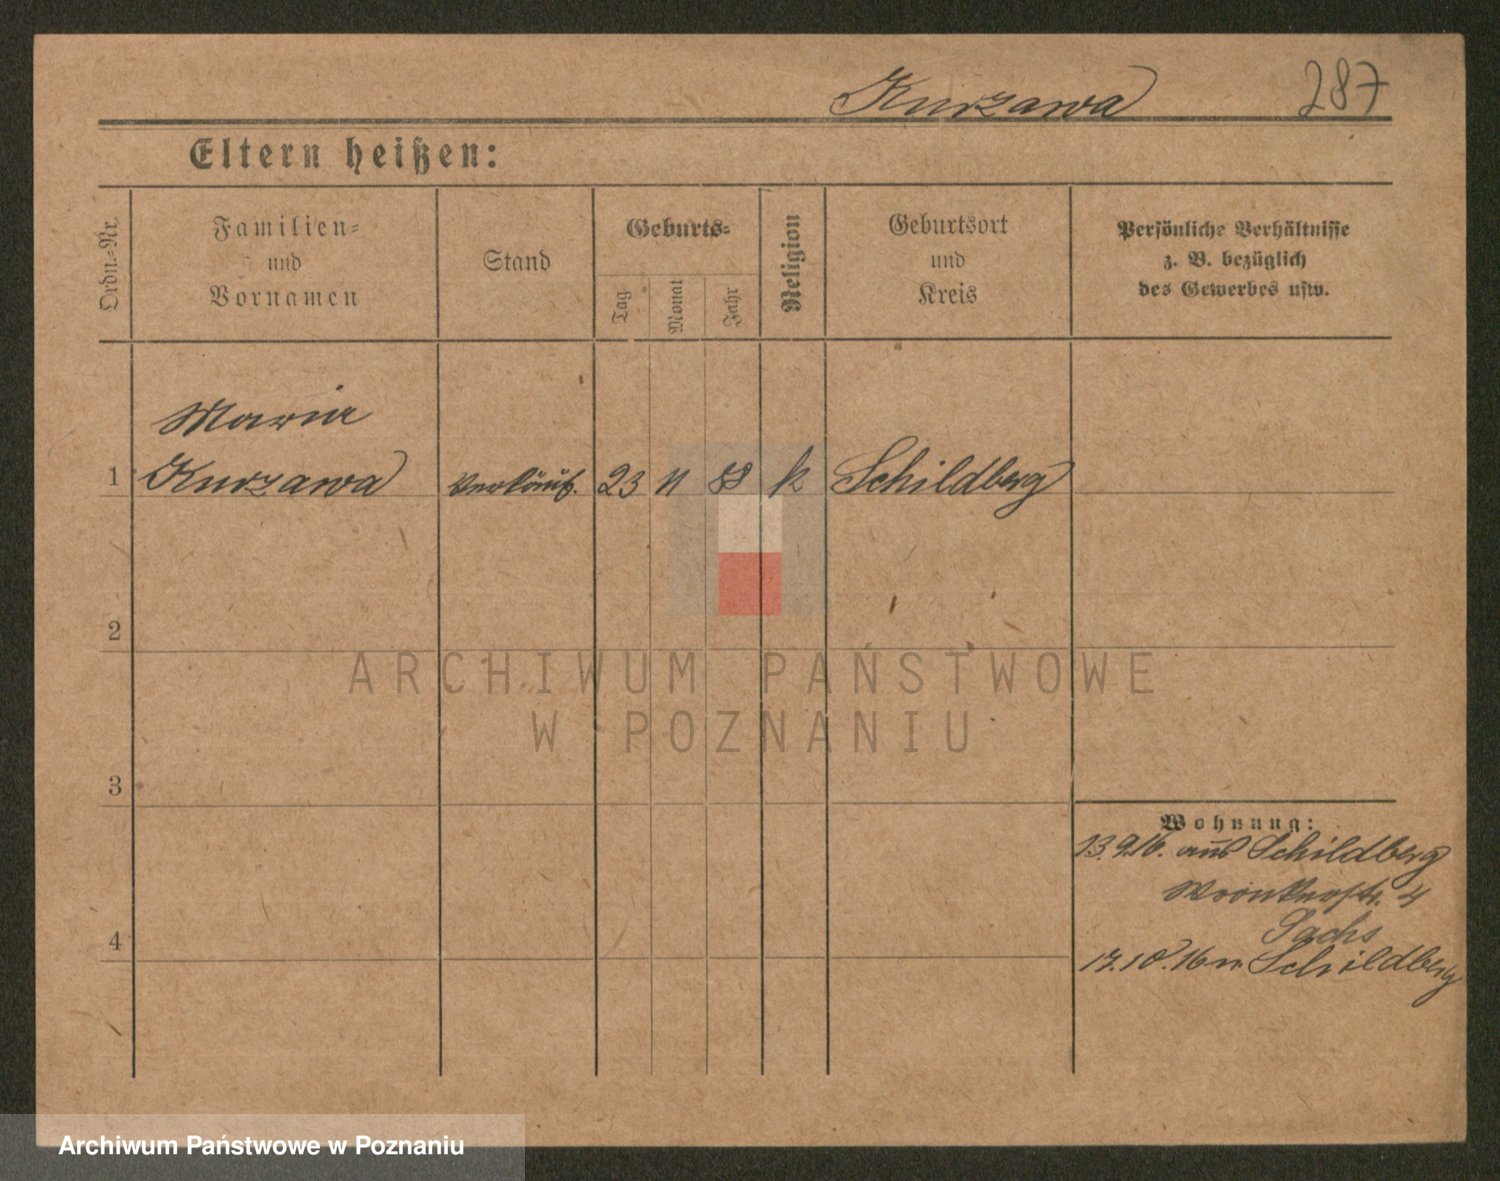 Kurzawa 287
Eltern heißen:
Ordn.-Nr.
Familien-
und
Vornamen
Stand
Geburts-
Tag
Monat
Jahr
Religion
Geburtsort
und
Kreis
Persönliche Verhältnisse
z. B. bezüglich
des Gewerbes usw.
Maria
1 Kurzawa Verkäuf. 23 11 88 k Schildberg
2
3
4
Wohnung:
13.9.16. aus Schildberg
Wronkerstr. 4
Sachs
17.10.16 n Schildberg
ARCHIWUM PAŃSTWOWE
W POZNANIU
Archiwum Państwowe w Poznaniu